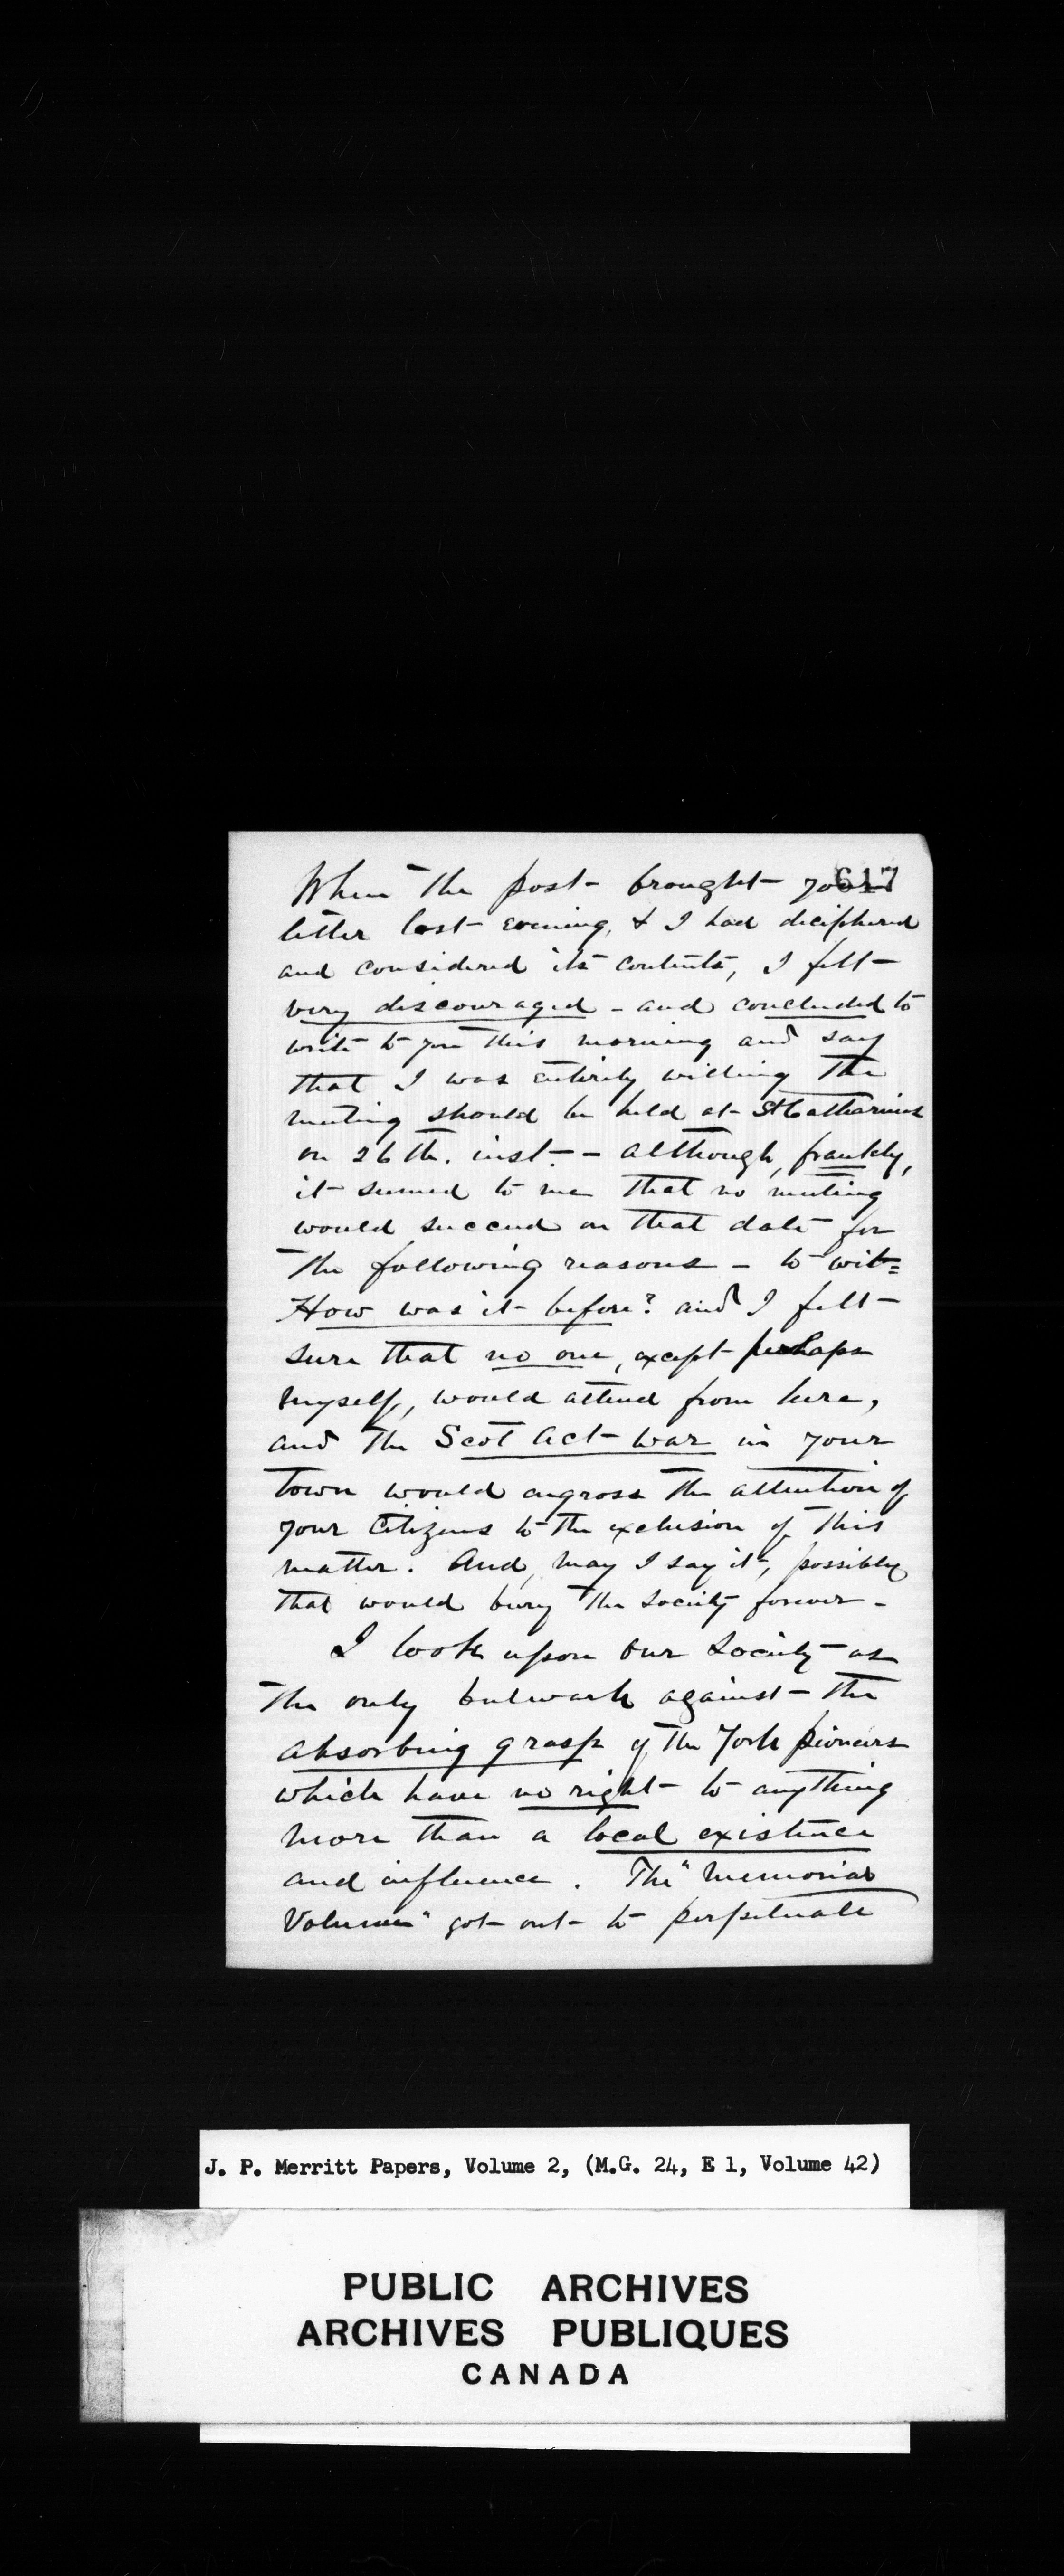 617
When the post brought your
letter last evening, & I had deciphered
and considered its contents, I felt
very discouraged - and concluded to
write to you this morning and say
that I was entirely willing the
meeting should be held at St Catharines
on 26th. inst. - although, frankly,
it seemed to me that no meeting
would succeed on that date for
the following reasons - to wit=
How was it before? and I felt
sure that no one, except perhaps
myself, would attend from here,
and the Scot Act war in your
town would engross the attention of
your Citizens to the exclusion of this
matter. And, may I say it, possibly
that would bury the society forever -
I look upon our Society as
the only bulwark against the
absorbing grasp of the York pioneers
which have no right to anything
more than a local existence
and influence. The "Memorial
Volume" got out to perpetuate
J. P. Merritt Papers, Volume 2, (M.G. 24, E 1, Volume 42)
PUBLIC ARCHIVES
ARCHIVES PUBLIQUES
CANADA